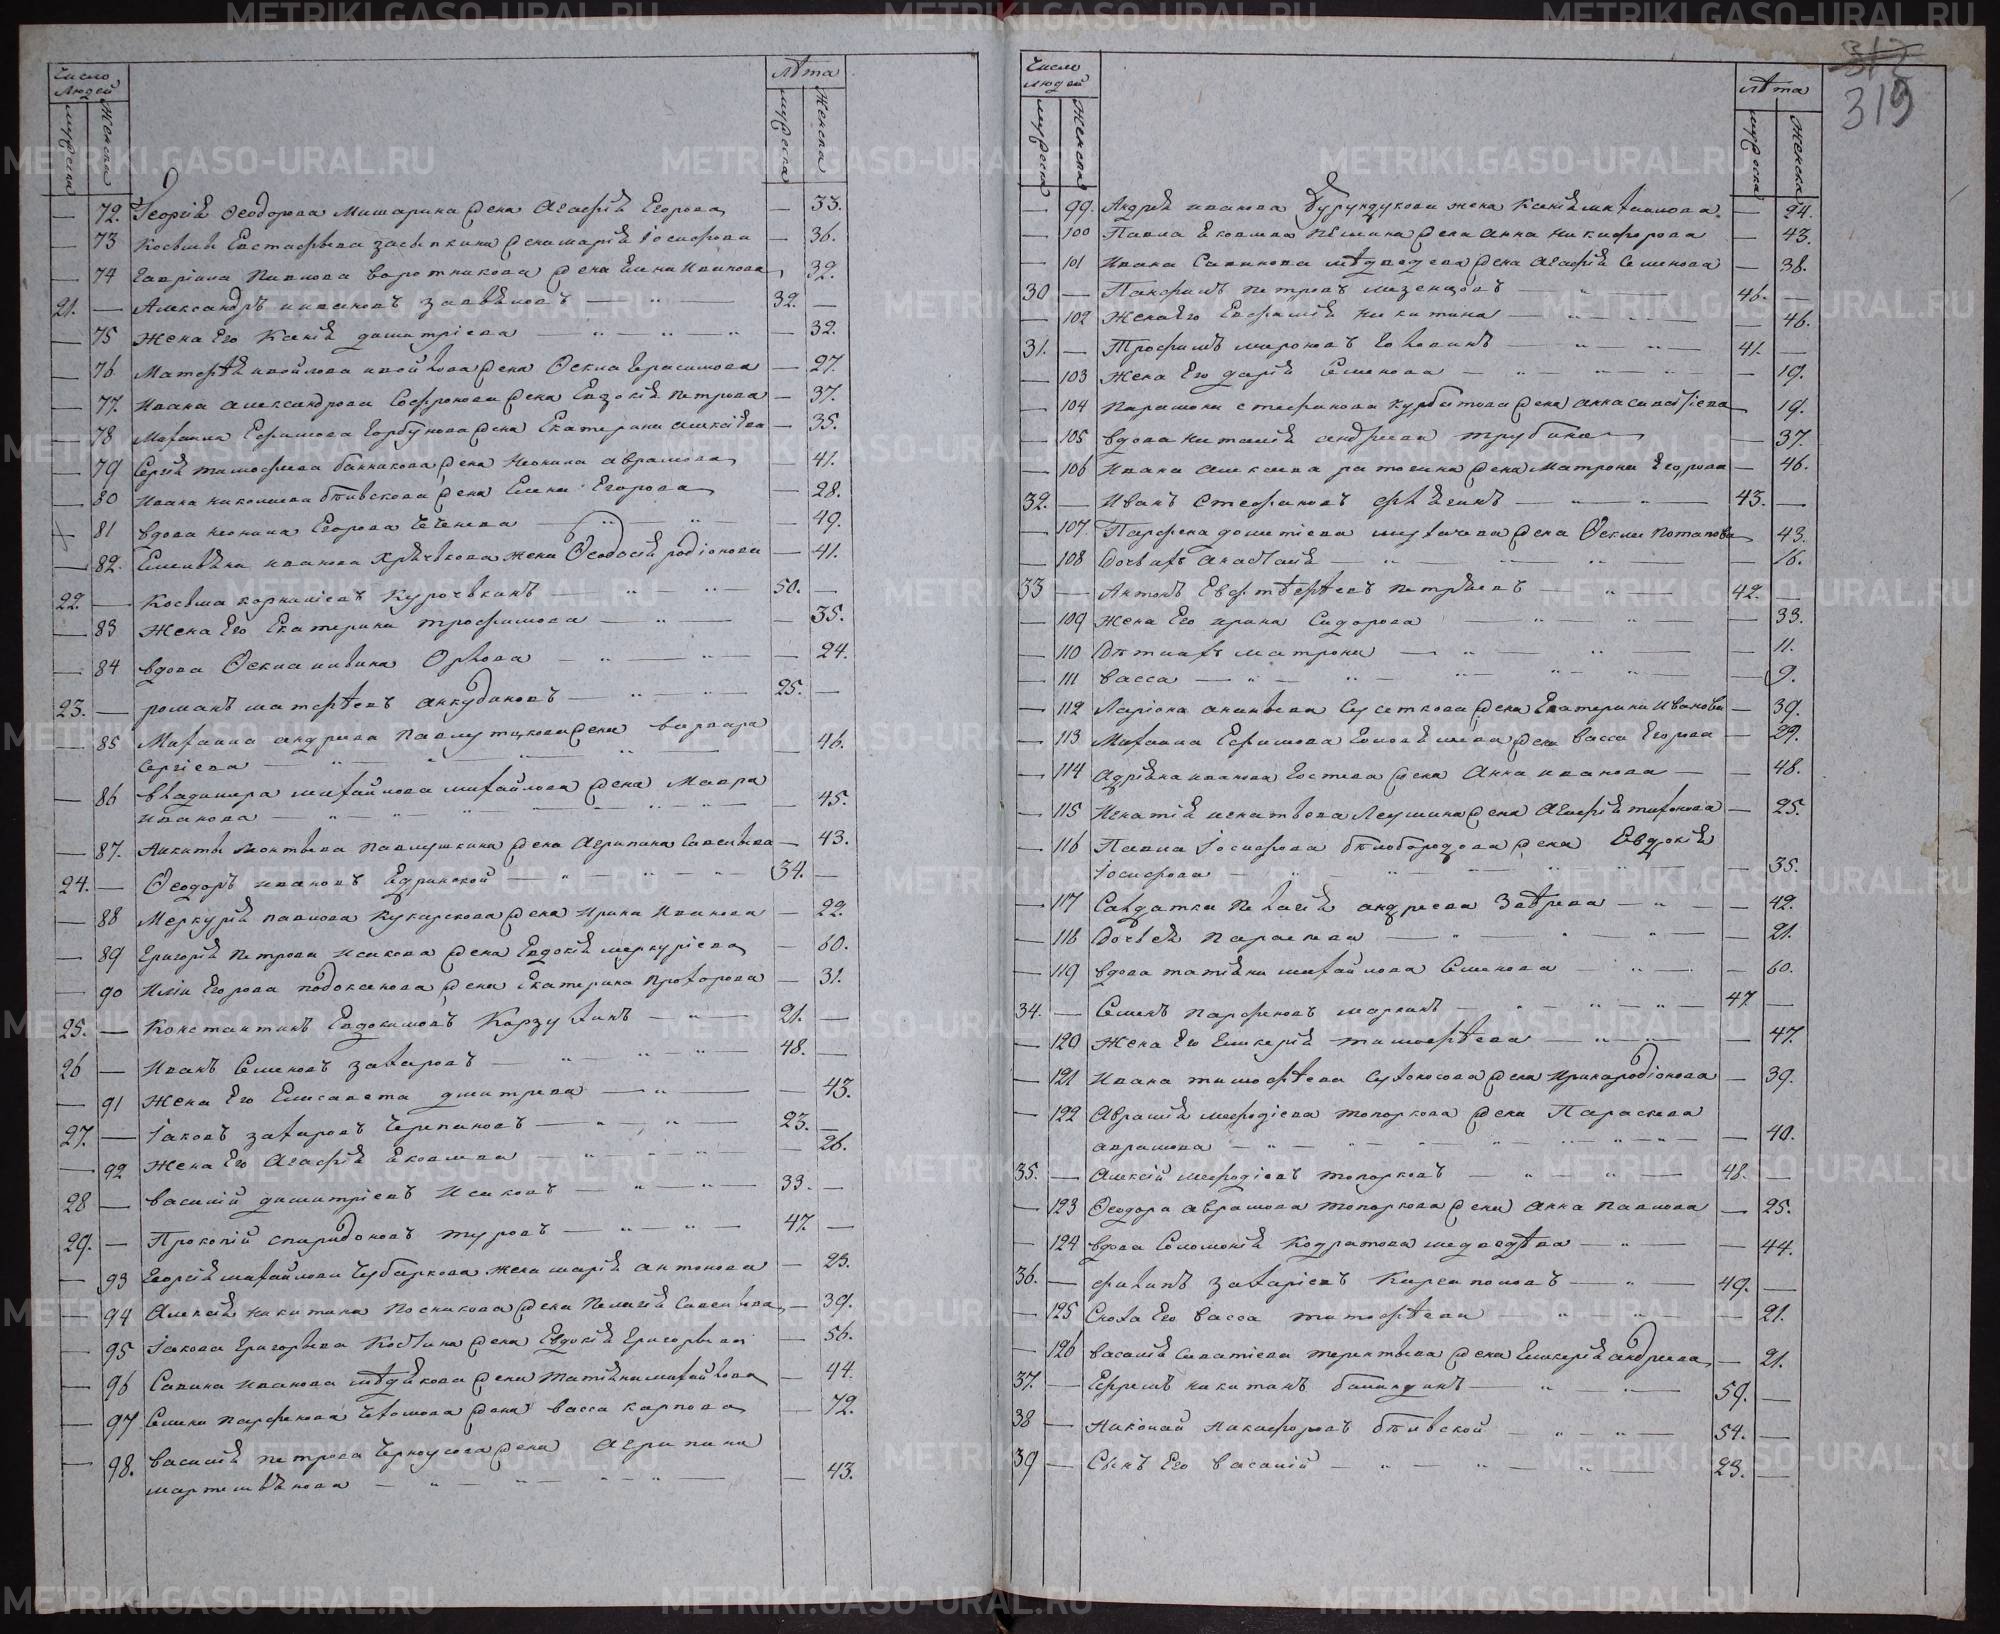 METRIKI.GASO-URAL.RU
Число людей
мужеска
Женска
Лѣта
мужеска
Женска
— 72. Георгія Ѳеодорова Мишарина жена Агафія Егорова — 33.
— 73 Косьмы Евстафьева Засыпкина жена Марія Іосифова — 36.
— 74 Гавріила Павлова Воротникова жена Елена Иванова 32.
21. — Александръ Ивановъ 32. —
— 75 Жена Его Ксенія Димитріева — 32.
— 76 Матфѣя жена Ѳекла Герасимова — 27.
— 77. Ивана Александрова Софронова жена Евдокія Петрова — 37.
— 78 Михаила Ефимова Горбунова жена Екатерина Алексіева — 35.
— 79 Сергія Тимофеева Банникова жена Неонила Аврамова — 41.
— 80 Ивана Николаева Бѣлевскова жена Елена Егорова — 28.
— 81 Вдова Неонила Егорова — 49.
— 82. Иванова жена Ѳеодосія Родіонова — 41.
22. — Косьма Корниліевъ Курочкинъ 50. —
— 83 Жена Его Екатерина Трофимова — 35.
— 84 Вдова Ѳекла Орлова — 24.
23. — Романъ Матфѣевъ Анкудиновъ 25. —
— 85 Михаила Андреева жена Варвара
Сергіева — 46.
— 86 Владимира Михайлова Михайлова жена Мавра
Иванова — 45.
— 87. Никиты Леонтьева Павлушкина жена Агрипина Савельева — 43.
24. — Ѳеодоръ Ивановъ Едринской 34. —
— 88 Меркурія Павлова Кукарскова жена Ирина Иванова — 22.
— 89 Григорія Петрова Исакова жена Евдокія Меркуріева — 60.
— 90 Иліи Егорова жена Екатерина Прохорова — 31.
25. — Константинъ Евдокимовъ Карзухинъ 21. —
26 — Иванъ Семеновъ Захаровъ 48. —
— 91 Жена Его Елисавета Дмитрева — 43.
27. — Іаковъ Захаровъ Черепановъ 23. —
— 92 Жена Его Агафія Яковлева — 26.
28 — Василій Димитріевъ Исаковъ 33. —
29. — Прокопій Спиридоновъ Туровъ 47. —
— 93 Георгія Михайлова жена Марія Антонова — 23.
— 94 Алексія Никитина Посникова жена Пелагія Савельева — 39.
— 95 Іакова Григорьева Костина жена Евдокія Григорьева — 56.
— 96 Савина Иванова жена Татіяна Михайлова — 44.
— 97 Семена Парфенова жена Васса Карпова — 72.
— 98. Василія Петрова Черноусова жена Агрипина
Мартемьянова — 43.
317
319
Число людей
мужеска
Женска
Лѣта
мужеска
Женска
— 99. Андрея Иванова Бурундукова жена Ксенія Михаилова — 24.
— 100 Павла Яковлева жена Анна Никифорова — 43.
— 101 Ивана Савинова Мѣдведева жена Агафія Семенова — 38.
30 — Панфилъ Петровъ Мезенцовъ 46. —
— 102 Жена Его Евфимія Никитина — 46.
31. — Трофимъ Мироновъ 41. —
— 103 Жена Его Дарія Семенова — 19.
— 104 Парамона Стефанова Курбатова жена Анна 19.
— 105 Вдова Наталія Андреева Трубина — 37.
— 106 Ивана Алексеева жена Матрона Егорова — 46.
32. — Иванъ Стефановъ 43. —
— 107. Парфена Дометіева жена Ѳекла Потапова 43.
— 108 Дочь ихъ Анастасія — 16.
33 — Антонъ Петряевъ 42. —
— 109 Жена Его Ирина Сидорова — 33.
— 110 Дѣти ихъ Матрона — 11.
— 111 Васса — 9.
— 112 Ларіона Ананьева Сусеткова жена Екатерина Иванова — 39.
— 113 Михаила Ефимова жена Васса Егорова — 29.
— 114 Адріяна Иванова Гостева жена Анна Иванова — 48.
— 115 Игнатія Игнатьева Леушина жена Агафія Тихонова — 25.
— 116 Павла Іосифова Бѣлобородова жена Евдокія
Іосифова — 35.
— 117 Солдатка Пелагія Андреева — 42.
— 118 Дочь ея Параскева — 21.
— 119 Вдова Татіяна Михайлова Семенова — 60.
34. — Семенъ Парфеновъ 47 —
— 120 Жена Его Гликерія Тимофѣева — 47.
— 121 Ивана Тимофѣева Сухоносова жена Ирина Родіонова — 39.
— 122 Аврамія Мефодіева Топоркова жена Параскева
Аврамова — 40.
35. — Алексій Мефодіевъ Топорковъ 48. —
— 123 Ѳеодора Аврамова Топоркова жена Анна Павлова — 25.
— 124 Вдова Соломонія Кодратова Медведѣва — 44.
36. — Филипъ Захаріевъ 49. —
— 125 Сноха Его Васса Матфѣева — 21.
— 126 Василія Саватіева Терентьева жена Гликерія Андреева — 21.
37. — Ефремъ Никитинъ Баландинъ 59. —
38 — Николай Никифоровъ Бѣлевской 54. —
39 — Сынъ Его Василій 23. —